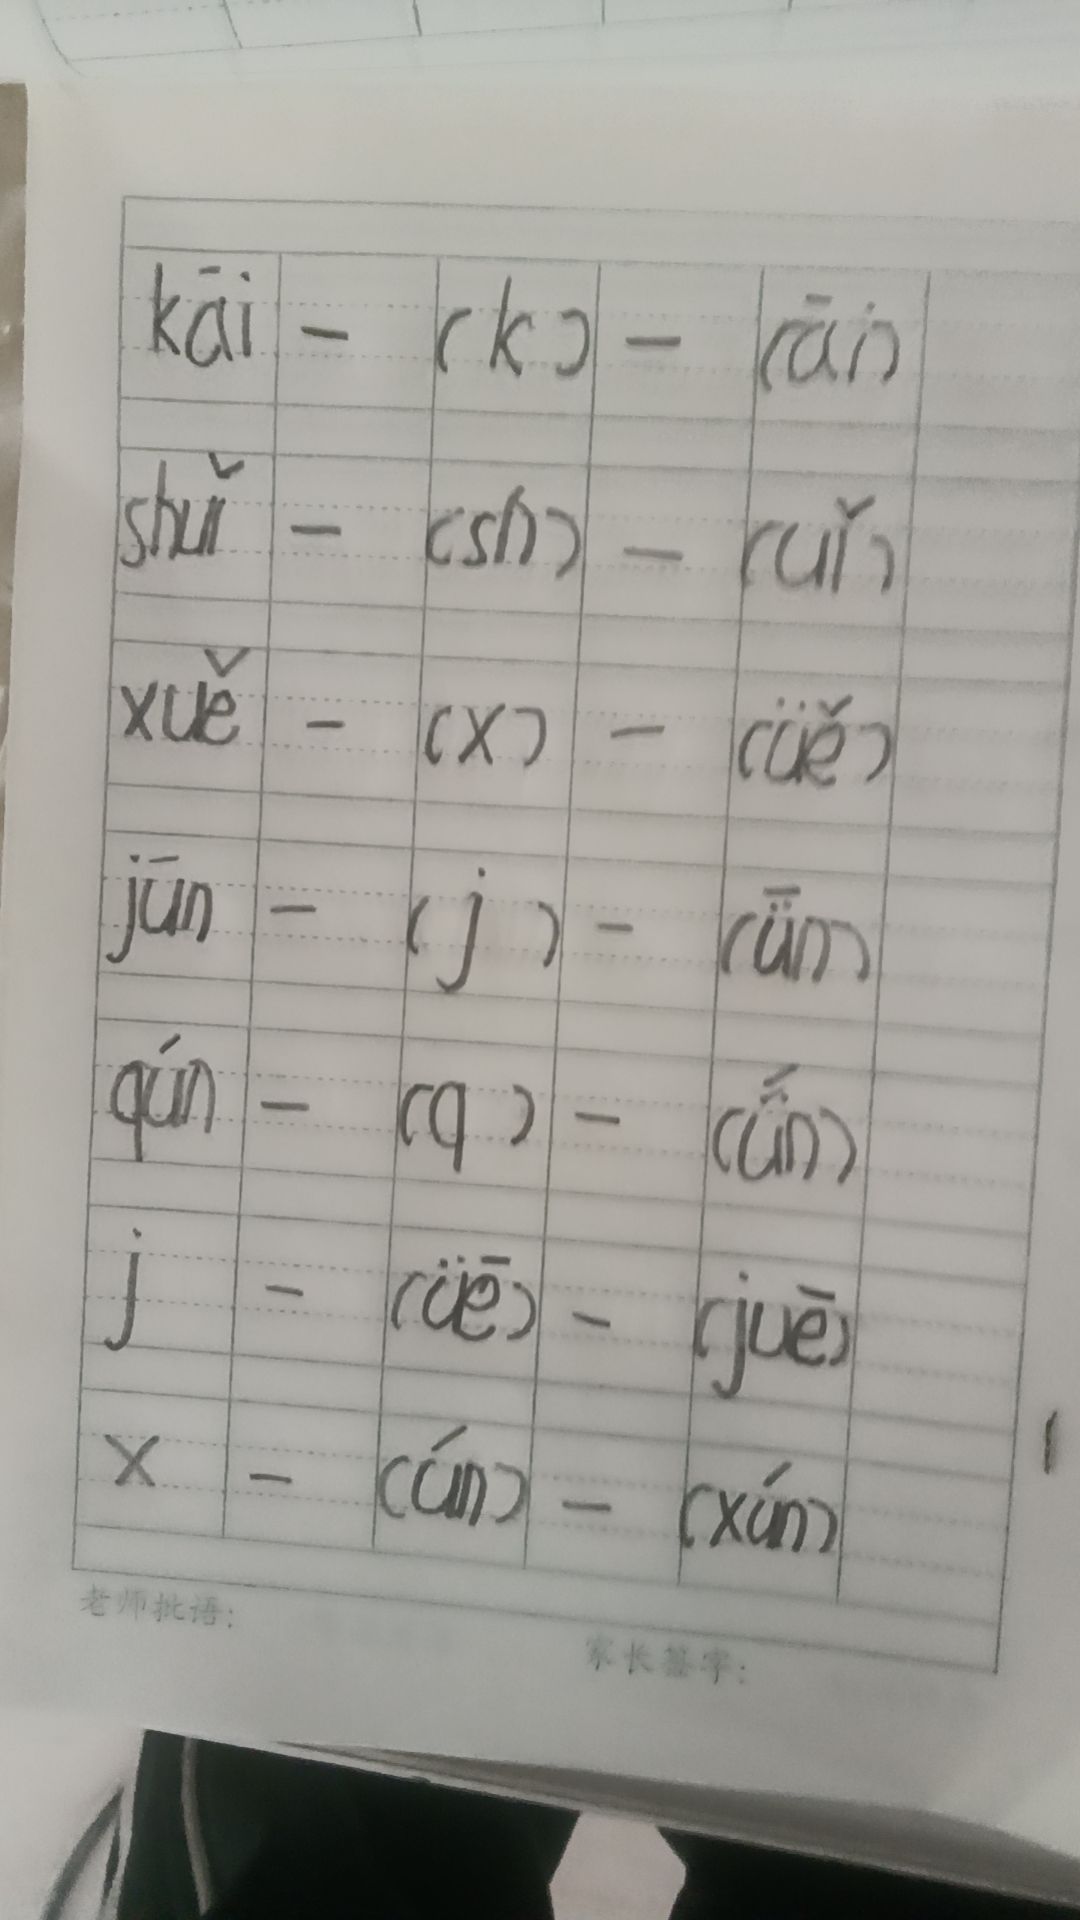 kāi - (k) - (āi)
shuǐ - (sh) - (uǐ)
xuě - (x) - (üě)
jūn - (j) - (ǖn)
qún - (q) - (ǘn)
j - (üē) - (juē)
x - (ún) - (xún)
老师批语: 家长签字: